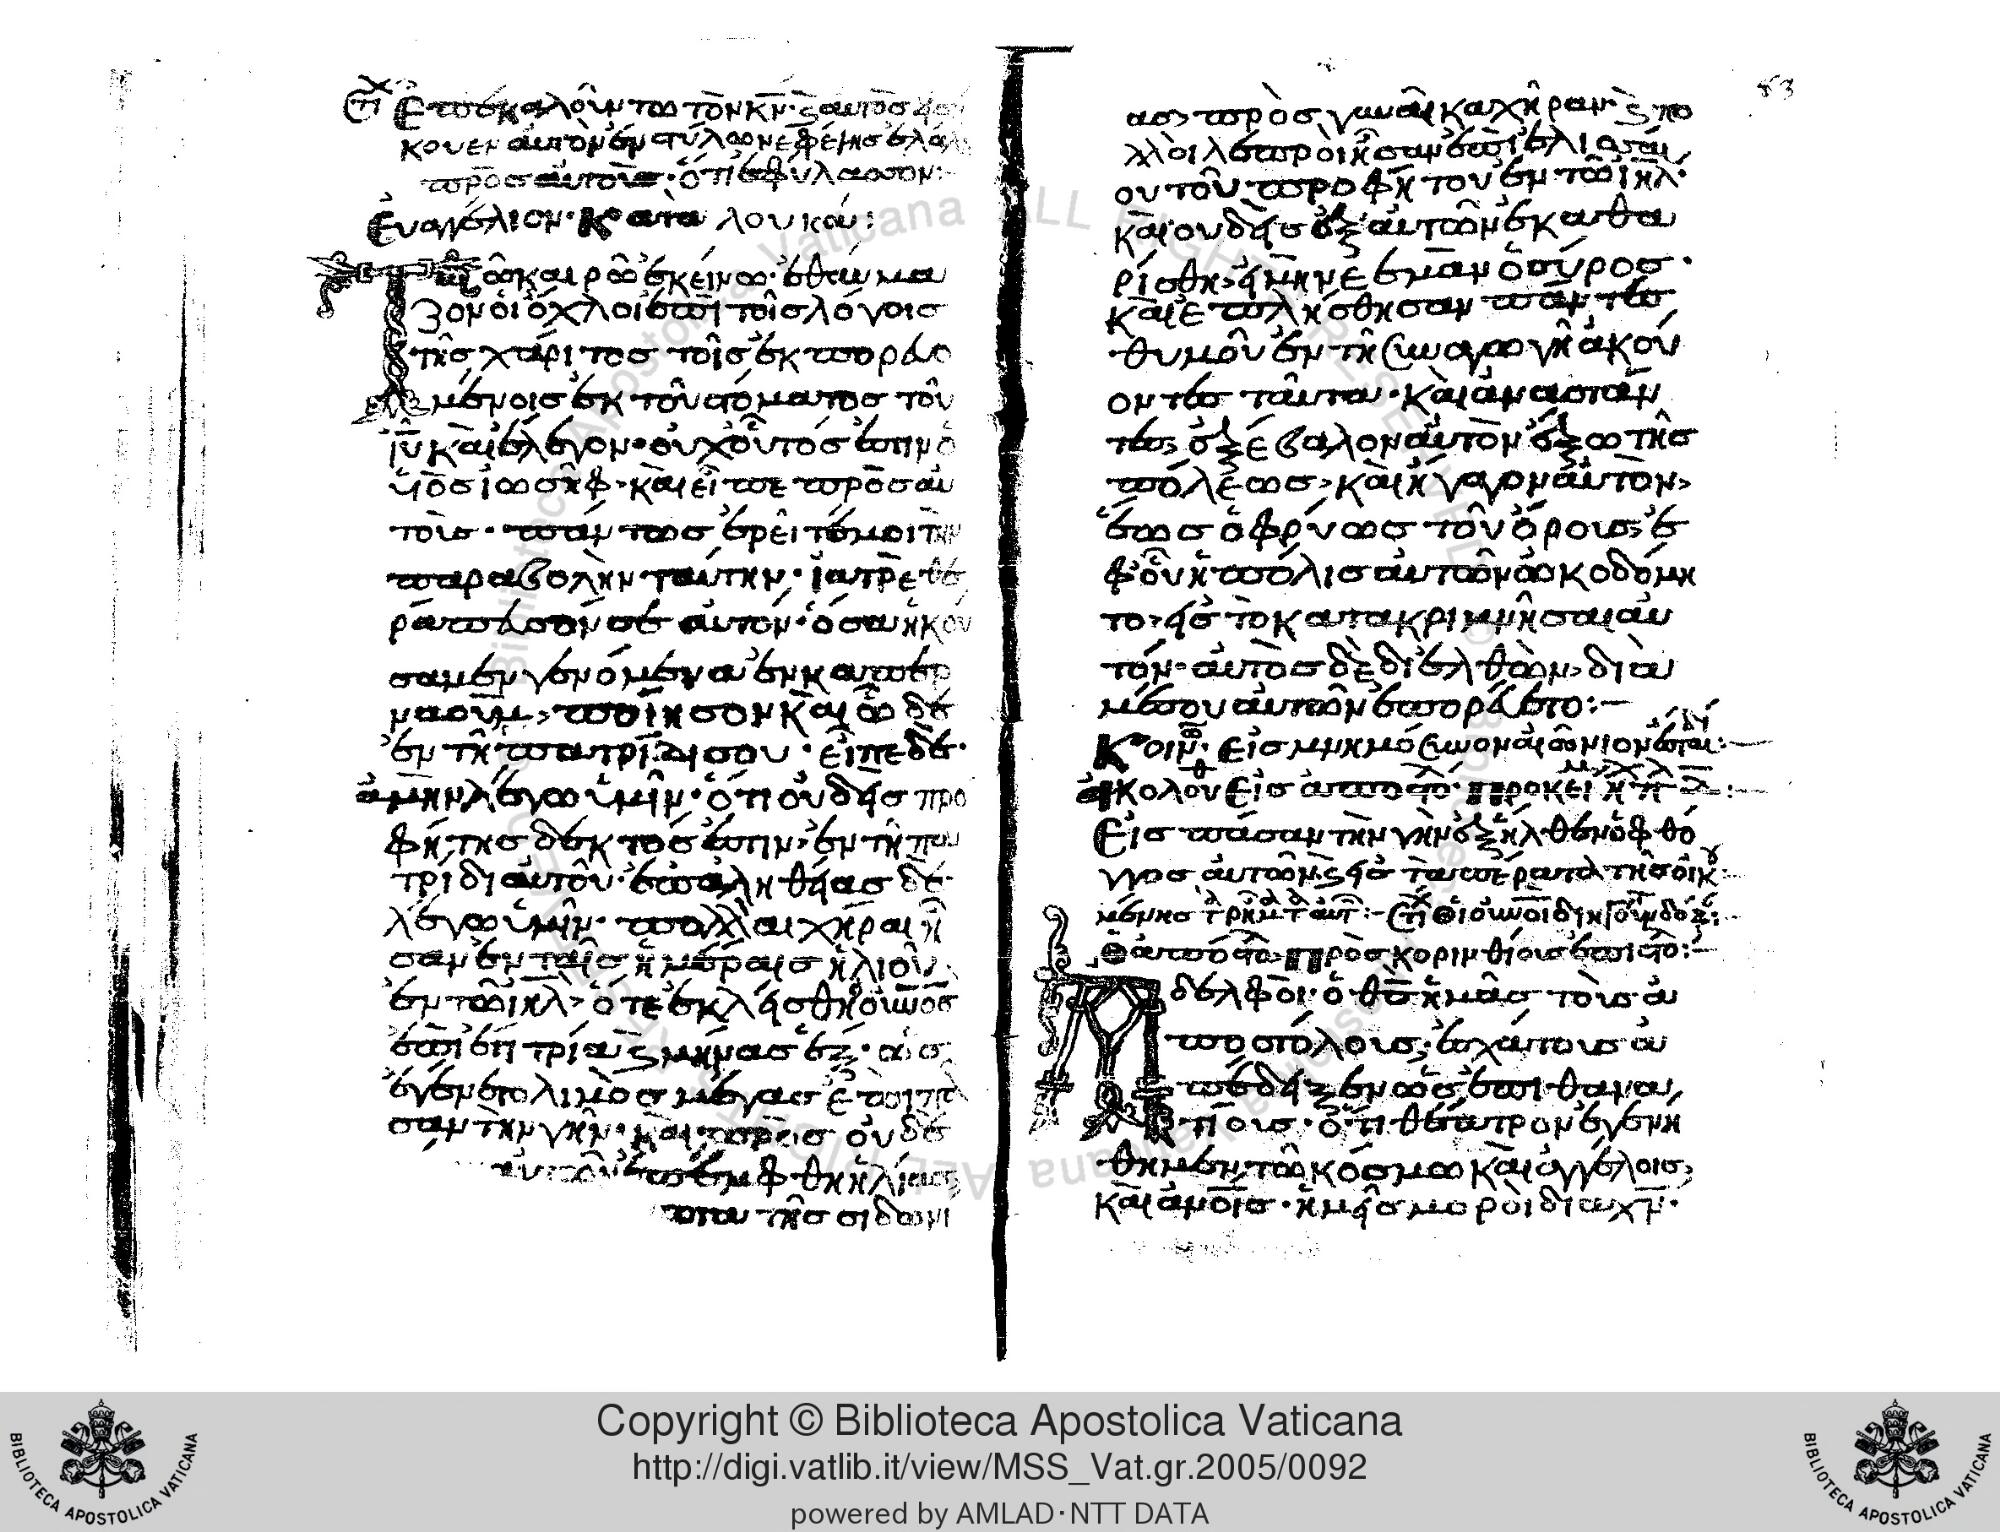 Στι Ἐπεκαλοῦντο τὸν κν· ϗ αὐτὸς εἰσή
κουεν αὐτὸν ἐν στύλω νεφέλης ἐλάλει
πρὸς αὐτοὺς· ὅτι ἐφύλασσον:–
Εὐαγγέλιον· Κατὰ λουκάν:
Τῶ καιρῶ ἐκείνω· ἐθαύμα
ζον οἱ ὄχλοι ἐπὶ τοῖς λόγοις
τῆς χάριτος τοῖς ἐκπορευο
μένοις ἐκ τοῦ στόματος τοῦ
ἰυ καὶ ἔλεγον· οὐχ οὗτός ἐστιν ὁ
υἱὸς ἰωσὴφ· καὶ εἶπε πρὸς αὐ
τοὺς· πάντως ἐρεῖτέ μοι τὴν
παραβολὴν ταύτην· ἰατρὲ θε
ράπευσον σεαυτόν· ὅσα ἠκού
σαμεν γενόμενα ἐν καπερ
ναοὺμ, ποίησον καὶ ὧδε
ἐν τῆ πατρίδι σου· εἶπε δὲ·
ἀμὴν λέγω ὑμῖν· ὅτι οὐδεὶς προ
φήτης δεκτός ἐστιν, ἐν τῆ πα
τρίδι αὐτοῦ· ἐπ ἀληθείας δὲ
λέγω ὑμῖν· πολλαι χῆραι ἦ
σαν ἐν ταῖς ἡμέραις ἠλιοῦ
ἐν τῶ ἰηλ, ὅτε ἐκλείσθη ὁ οὐνος
ἐπὶ ἔτη τρία ϗ μῆνας ἕξ· ὡς
ἐγένετο λιμὸς μέγας ἐπὶ πᾶ
σαν τὴν γῆν· καὶ πρὸς οὐδε
αὐτῶν ἐπέμφθη ἠλίας,
πτα τῆς σιδωνί
ας, πρὸς γυναῖκα χήραν· ϗ πο
λλοὶ λεπροὶ ἦσαν ἐπὶ ἐλισσαί
ου τοῦ προφήτου ἐν τῶ ἰηλ·
καὶ οὐδεὶς ἐξ αὐτῶν ἐκαθα
ρίσθη, εἰ μὴ νεεμὰν ὁ σύρος·
καὶ ἐπλήσθησαν πάντες
θυμοῦ ἐν τῆ συναγωγῆ ἀκού
οντες ταῦτα· καὶ ἀναστάν
τες, ἐξέβαλον αὐτὸν ἔξω τῆς
πόλεως, καὶ ἤγαγον αὐτὸν,
ἕως ὀφρύως τοῦ ὄρους, ἐ
φ οὗ ἡ πόλις αὐτῶν ὠκοδόμη
το, εἰς τὸ κατακριμνῆσαι αὐ
τόν· αὐτὸς δὲ διελθὼν, διὰ
μέσου αὐτῶν ἐπορεύετο:–
Κοιν· Εἰς μνημόσυνον αἰώνιον ἔσται δί:–
ἀκολουθ Εἰς ἀποστο· προκεί:–
Εἰς πᾶσαν τὴν γῆν ἐξῆλθεν ὁ φθό
γγος αὐτῶν ϗ εἰς τὰ πέρατα τῆς οἰκου
μένης τ ρημ τ αυτ:– Στι Οἱ οὐνοὶ διηγοῦν δόξ:
Ὁ ἀπόστο· πρὸς κορινθίους ἐπιστο:–
Ἀδελφοὶ· ὁ θς ἡμᾶς τοὺς ἀ
ποστόλους, ἐσχάτους ἀ
πέδειξεν ὡς ἐπιθανα
τίους· ὅτι θέατρον ἐγενή
θημεν τῶ κόσμω καὶ ἀγγέλοις,
καὶ ἀνοις· ἡμεῖς μοροὶ δια χν·
Copyright © Biblioteca Apostolica Vaticana
http://digi.vatlib.it/view/MSS_Vat.gr.2005/0092
powered by AMLAD·NTT DATA
BIBLIOTECA APOSTOLICA VATICANA
BIBLIOTECA APOSTOLICA VATICANA